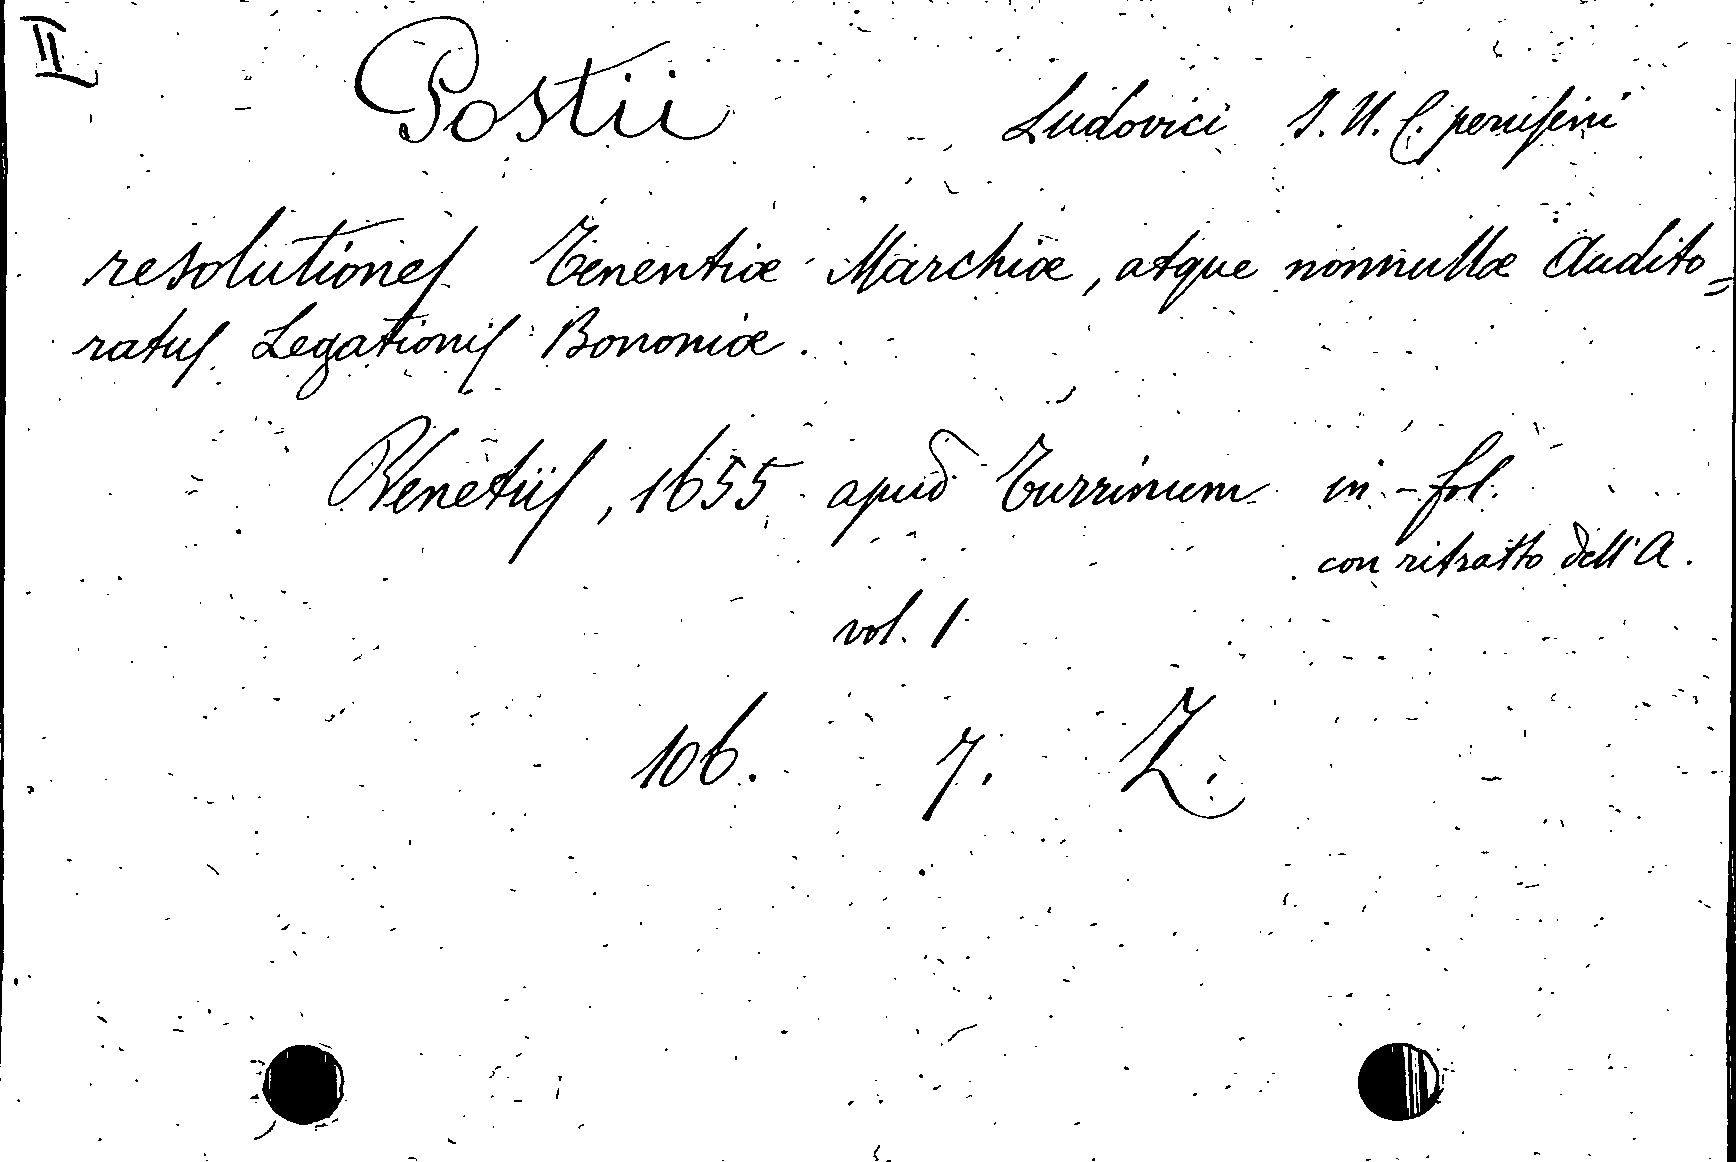 II
Postii Ludovici I. U. C. perusini
resolutiones Tenentiæ Marchiæ, atque nonnullæ Audito=
ratus Legationis Bononiæ.
Venetiis, 1655 apud Turrinum in-fol.
con ritratto dell'A.
vol. 1
106. 7. Z.